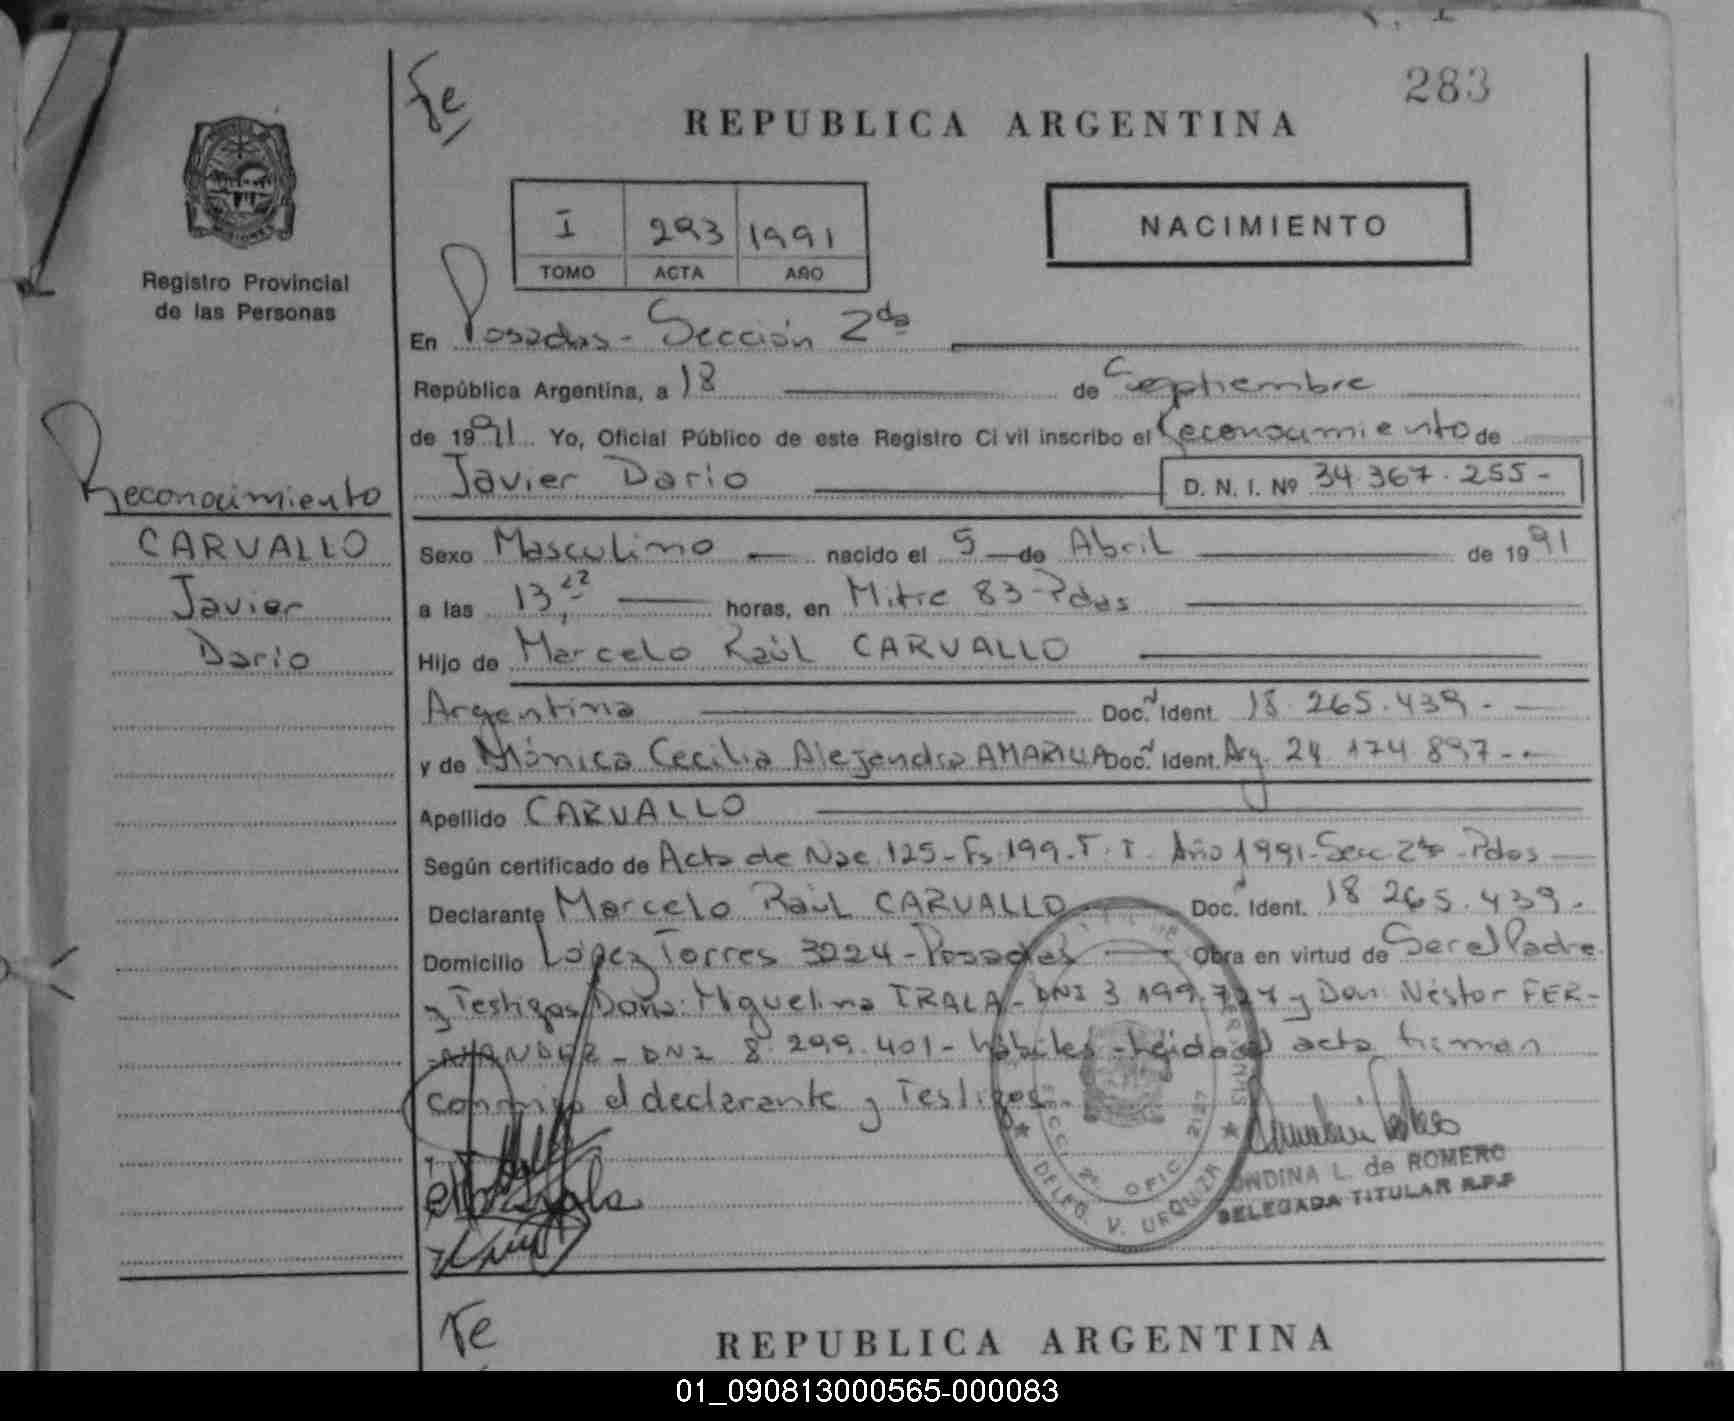 283
Fe
REPUBLICA ARGENTINA
I 293 1991
TOMO ACTA AÑO
NACIMIENTO
Registro Provincial
de las Personas
En Posadas - Sección 2da
República Argentina, a 18 de Septiembre
de 1991 Yo, Oficial Público de este Registro Civil inscribo el Reconocimiento de
Javier Dario D. N. I. Nº 34.367.255-
Reconocimiento
CARVALLO
Javier
Dario
Sexo Masculino nacido el 5 de Abril de 1991
a las 13, horas, en Mitre 83-Pdas
Hijo de Marcelo Raúl CARVALLO
Argentina Doc. Ident. 18.265.439-
y de Mónica Cecilia Alejandra AMARILLA Doc. Ident. Arg. 24.174.897-
Apellido CARVALLO
Según certificado de Acta de Nac. 125-Fs.199-T.I-Año 1991-Secc 2da-Pdas
Declarante Marcelo Raúl CARVALLO Doc. Ident. 18.265.439-
Domicilio López Torres 3224-Posadas Obra en virtud de Ser el Padre
y Testigos Doña: Miguelina IRALA-DNI 3.199.727 y Don: Néstor FER-
-NANDEZ-DNI 8.299.401-hábiles-Leida el acta firman
conmigo el declarante y Testigos.
SECC. 2º OFIC. 2127
DELEG. V. URQUIZA
ONDINA L. de ROMERO
DELEGADA TITULAR R.P.P
Fe
REPUBLICA ARGENTINA
01_090813000565-000083